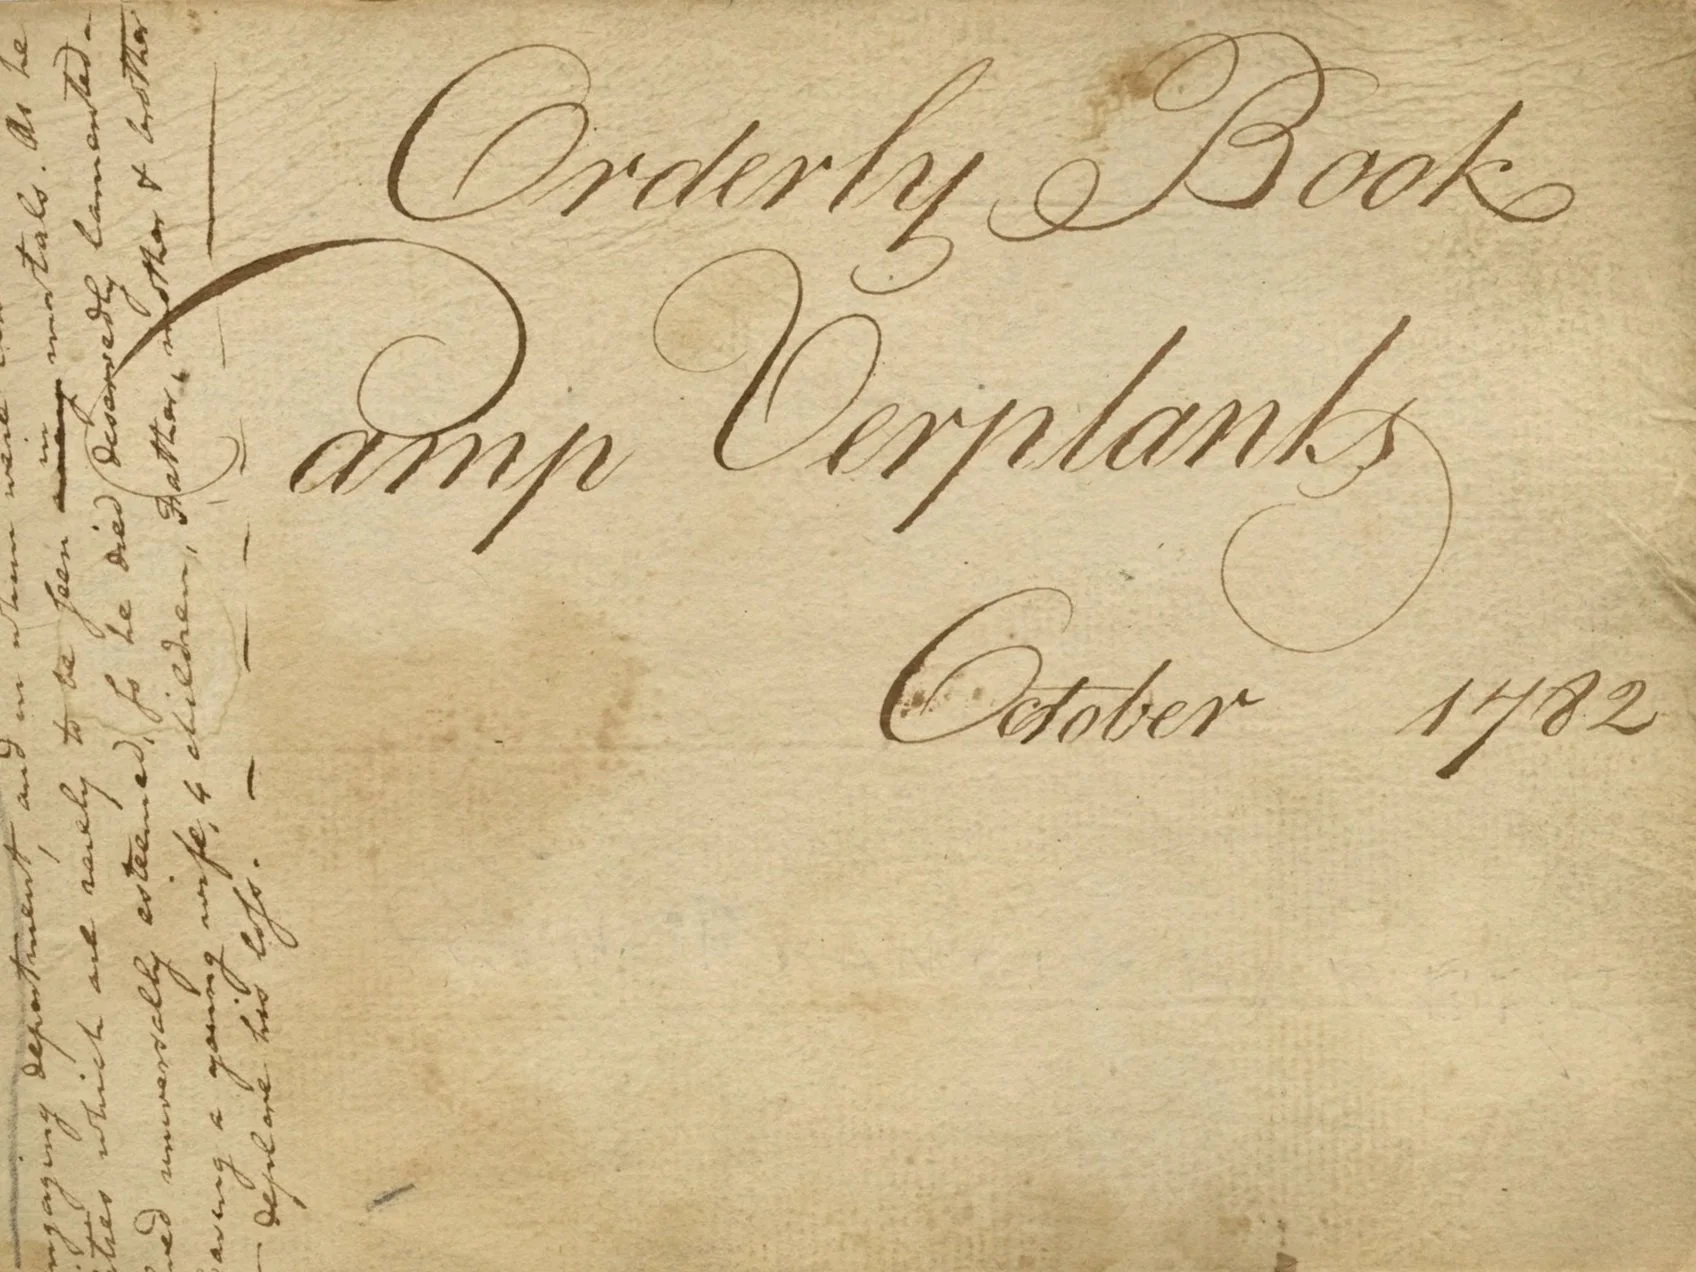 Orderly Book
Camp Verplanks
October 1782
engaging deportment, and in whom were
which are rarely to be seen in mortals. As he
universally esteemed, so he died deservedly lamented -
a young wife, 4 children, Father, mother & brother
deplore his loss.